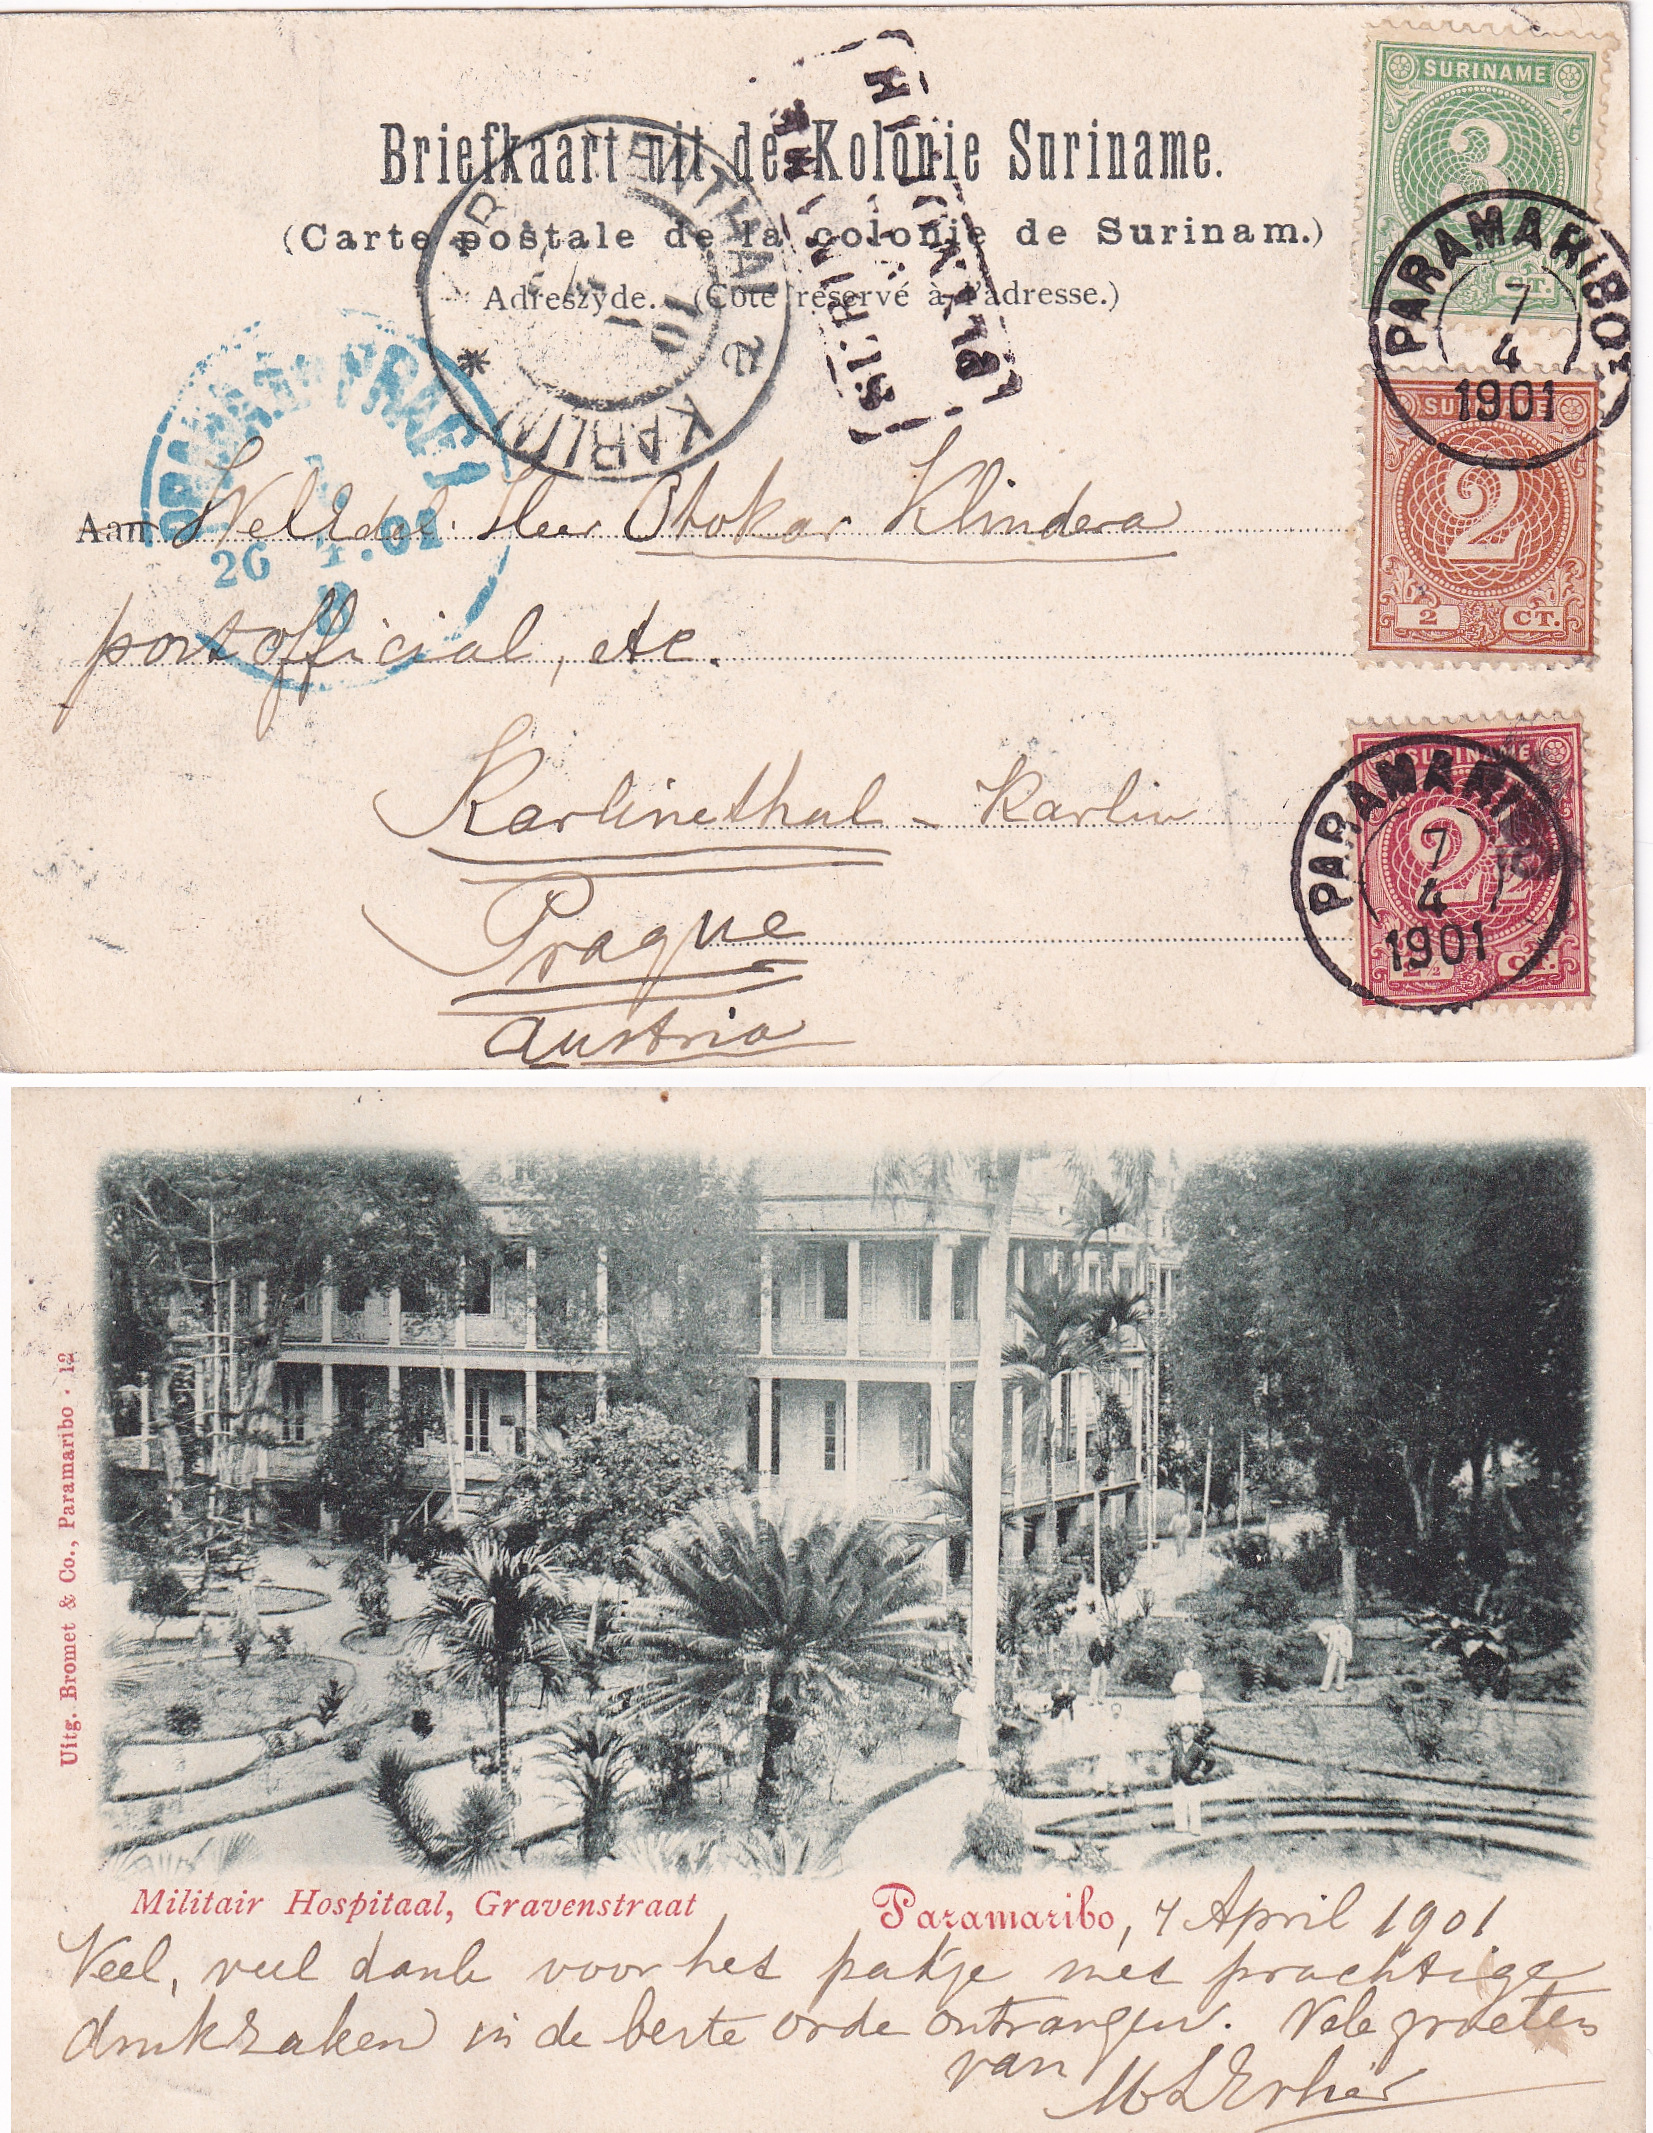 Briefkaart uit de Kolonie Suriname.
(Carte postale de la colonie de Surinam.)
Adreszyde. (Côté réservé à l'adresse.)
SURINAME
3
CT.
PARAMARIBO
7
4
1901
SURINAME
2
2 CT.
SURINAME
2½
2½ CT.
PARAMARIBO
7
4
1901
KARLÍN
26 4.01
8
Aan WelEdel. Heer Otokar Klindera
postofficial, etc.
Karlinethal - Karlin
Prague
Austria
Uitg. Bromet & Co., Paramaribo · 12
Militair Hospitaal, Gravenstraat
Paramaribo, 7 April 1901
Veel, veel dank voor het pakje met prachtige
drukzaken in de beste orde ontvangen. Vele groeten
van